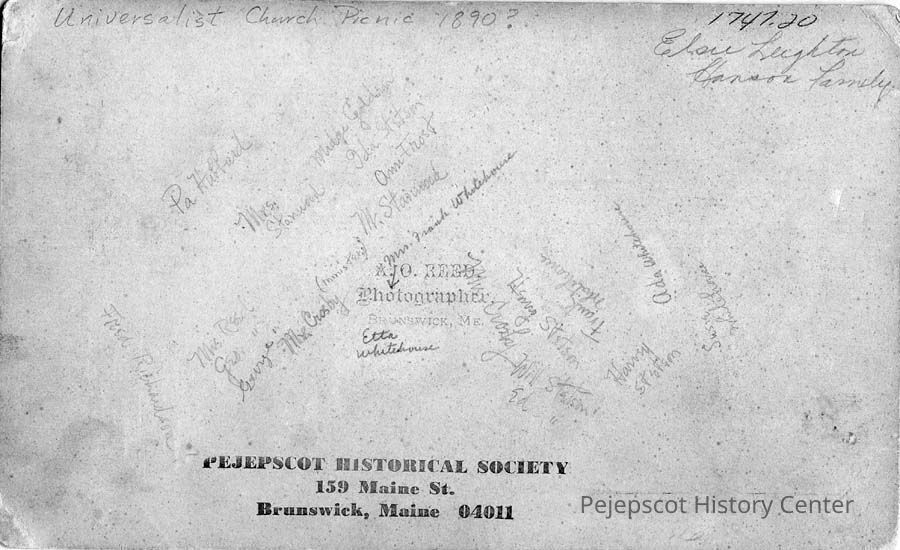 Universalist Church Picnic 1890?
1747.20
Elsie Leighton
Hanson Family
Pa Hubbard
Mrs.
Stanwood
Madge
Ida Stetson
Ann Frost
M. Stanwood
Mrs. Frank Whitehouse
Mr. Crosby (minister)
A. O. REED,
Photographer,
BRUNSWICK, ME.
Etta
Whitehouse
Richardson
George "
Frank
Whitehouse
Stetson
Will Stetson
Ed "
Harry
Stetson
Ada Whitehouse
Whitehouse
PEJEPSCOT HISTORICAL SOCIETY
159 Maine St.
Brunswick, Maine 04011
Pejepscot History Center